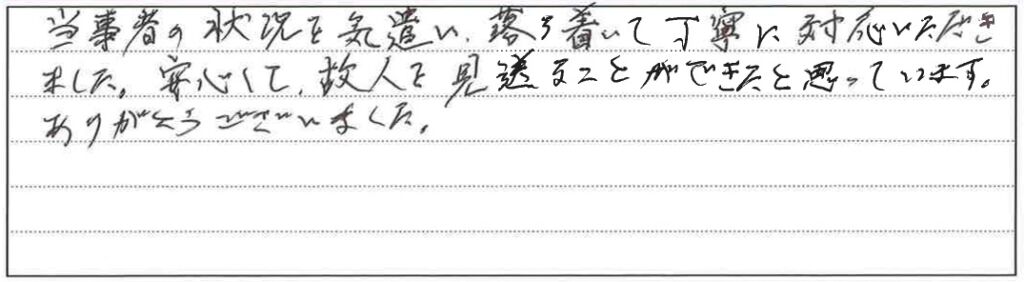 当事者の状況を気遣い、落ち着いて丁寧に対応いただき
ました。安心して、故人を見送ることができたと思っています。
ありがとうございました。